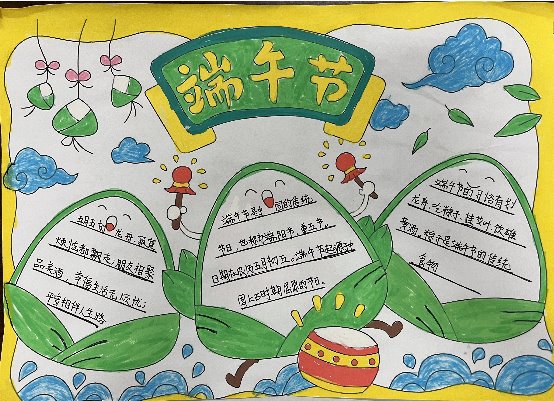 端午节
五月五 龙舟
烦恼都飘走 朋友相聚
品美酒 幸福生活无
平安相伴人生路
端午节是中国的传统
节日 也称为端阳节、重五节。
日期在农历五月初五。端午节起源于
屈原的节。
端午节的习俗有划
龙舟、吃粽子、挂艾叶、饮雄
黄酒。粽子是端午节的传统
食物